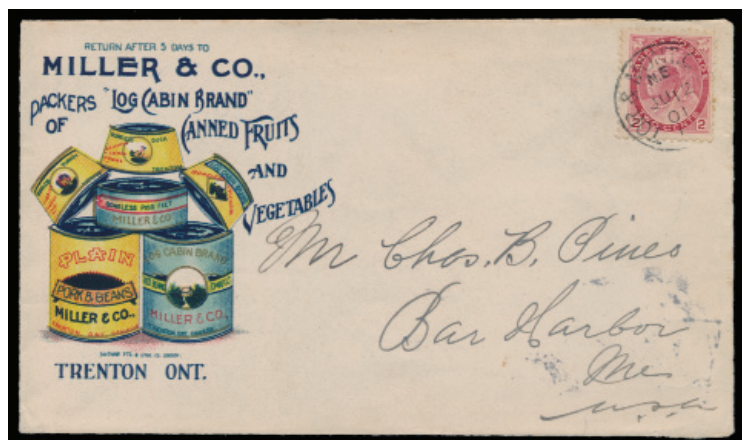 RETURN AFTER 5 DAYS TO
MILLER & CO.,
PACKERS "LOG CABIN BRAND"
OF CANNED FRUITS
AND
VEGETABLES
BONELESS PIGS FEET
MILLER & CO
PLAIN
PORK & BEANS
MILLER & CO.,
TRENTON, ONT. CANADA
LOG CABIN BRAND
MILLER & CO.,
TRENTON ONT. CANADA
TRENTON ONT.
TWO CENTS
2
2
JU 2
01
Mr Chas. B. Pineo
Bar Harbor
Me
USA